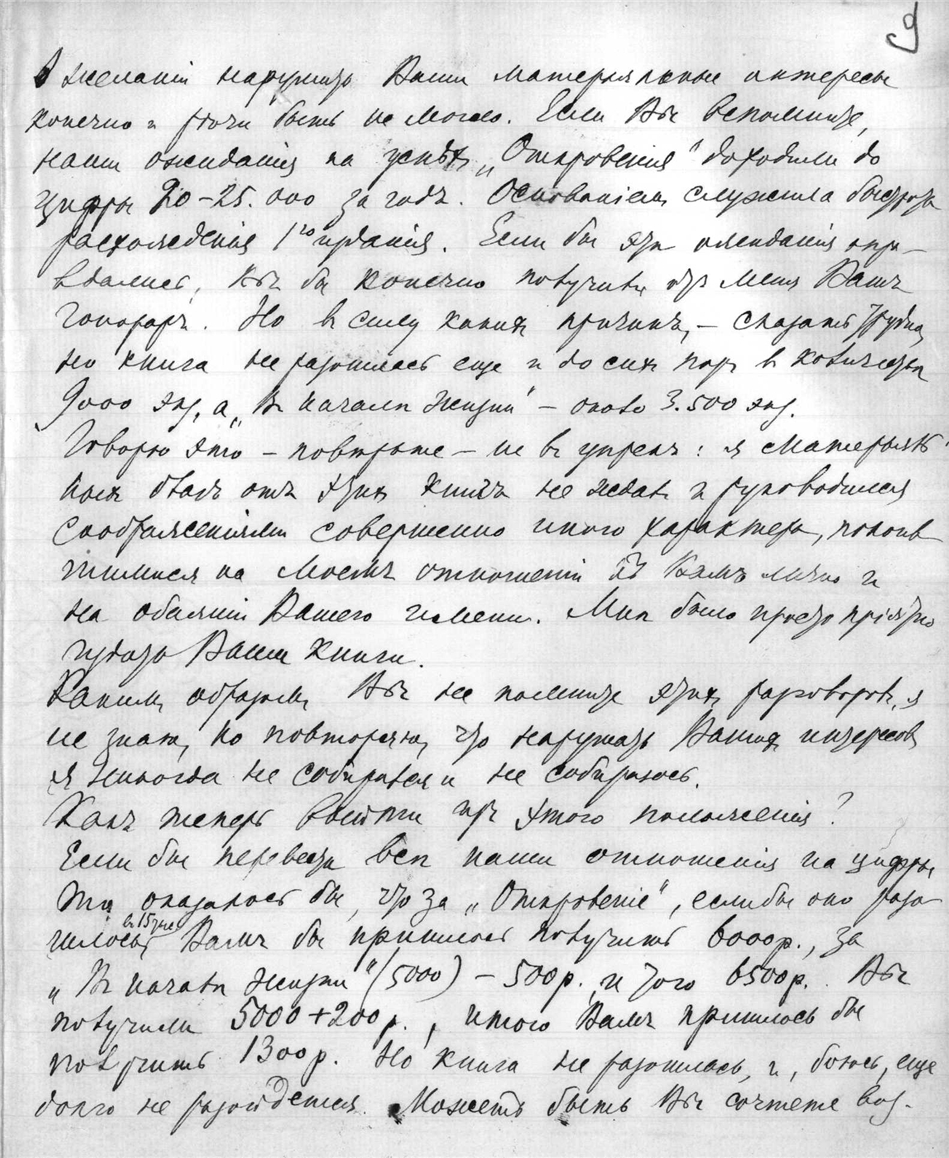 9
О желаніи нарушить Ваши матерьяльные интересы
конечно и рѣчи быть не могло. Если Вы вспомните,
наши ожиданія на успѣхъ „Откровенія" доходили до
цифры 20-25.000 за годъ. Основаніемъ служила быстрота
расхожденія 1го изданія. Если бы эти ожиданія опра-
вдались, Вы бы конечно получили отъ меня Вашъ
гонораръ. Но въ силу какихъ причинъ, – сказать трудно,
но книга не разошлась еще и до сихъ поръ въ количествѣ
9000 экз, а „Въ началѣ жизни" – около 3.500 экз.
Говорю это – повѣрьте – не въ упрекъ: я матерьяль-
ныхъ благъ отъ этихъ книгъ не ждалъ и руководился
соображеніями совершенно иного характера, покоив-
шимися на моемъ отношеніи къ Вамъ лично и
на обаяніи Вашего имени. Мнѣ было просто пріятно
издать Ваши книги.
Какимъ образомъ Вы не помните этихъ разговоровъ, я
не знаю, но повторяю, что нарушать Вашихъ интересовъ
я никогда не собирался и не собираюсь.
Какъ теперь выйти изъ этого положенія?
Если бы перевести всѣ наши отношенія на цифры
то оказалось бы, что за „Откровеніе", если бы оно разо-
шлось въ 15 тыс Вамъ бы пришлось получить 6000р., за
„Въ началѣ жизни" (5000) – 500р. итого 6500р. Вы
получили 5000+200р., итого Вамъ пришлось бы
получить 1300р. Но книга не разошлась, и, боюсь, еще
долго не разойдется. Можетъ быть Вы сочтете воз-